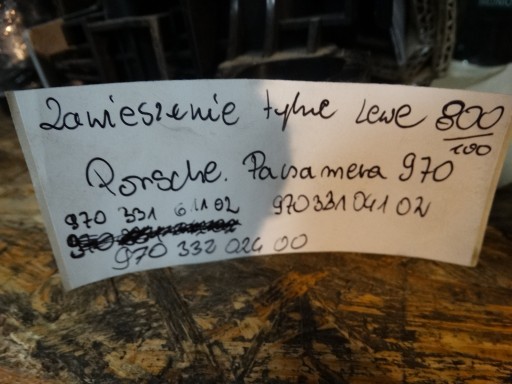 Zawieszenie tylne Lewe 800
100
Porsche. Panamera 970
970 331 611 02 970 331 041 02
970 332 024 00